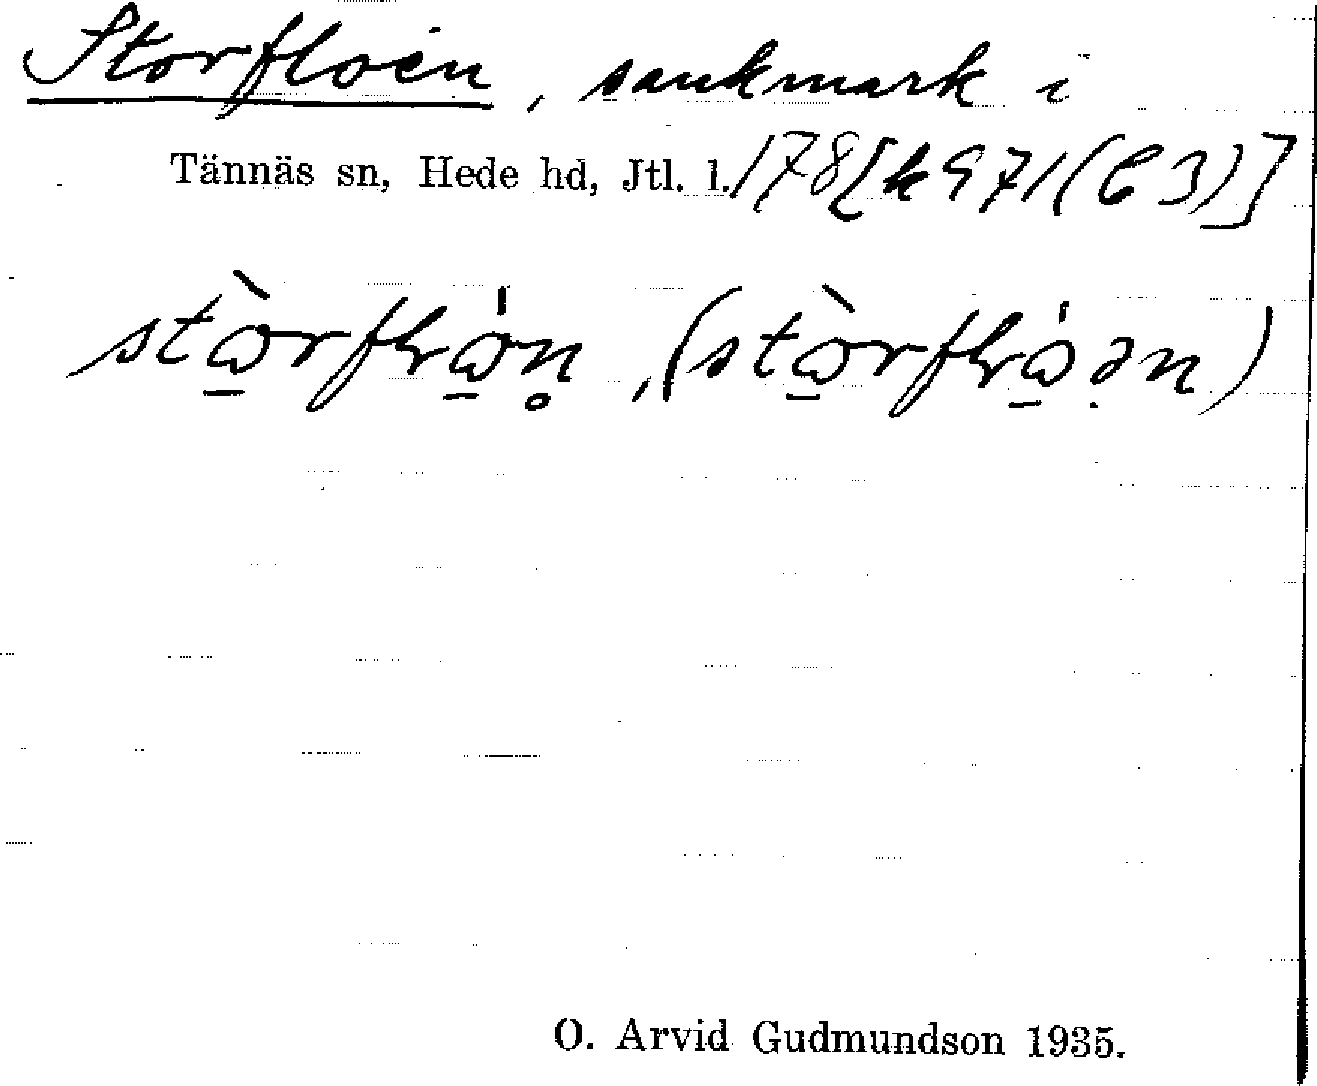 Storfloen, sankmark i
Tännäs sn, Hede hd, Jtl. l. 178[k971(C3)]
stὼ̲rflώ̲n̥, (stὼ̲rflώ̲ən)
O. Arvid Gudmundson 1935.